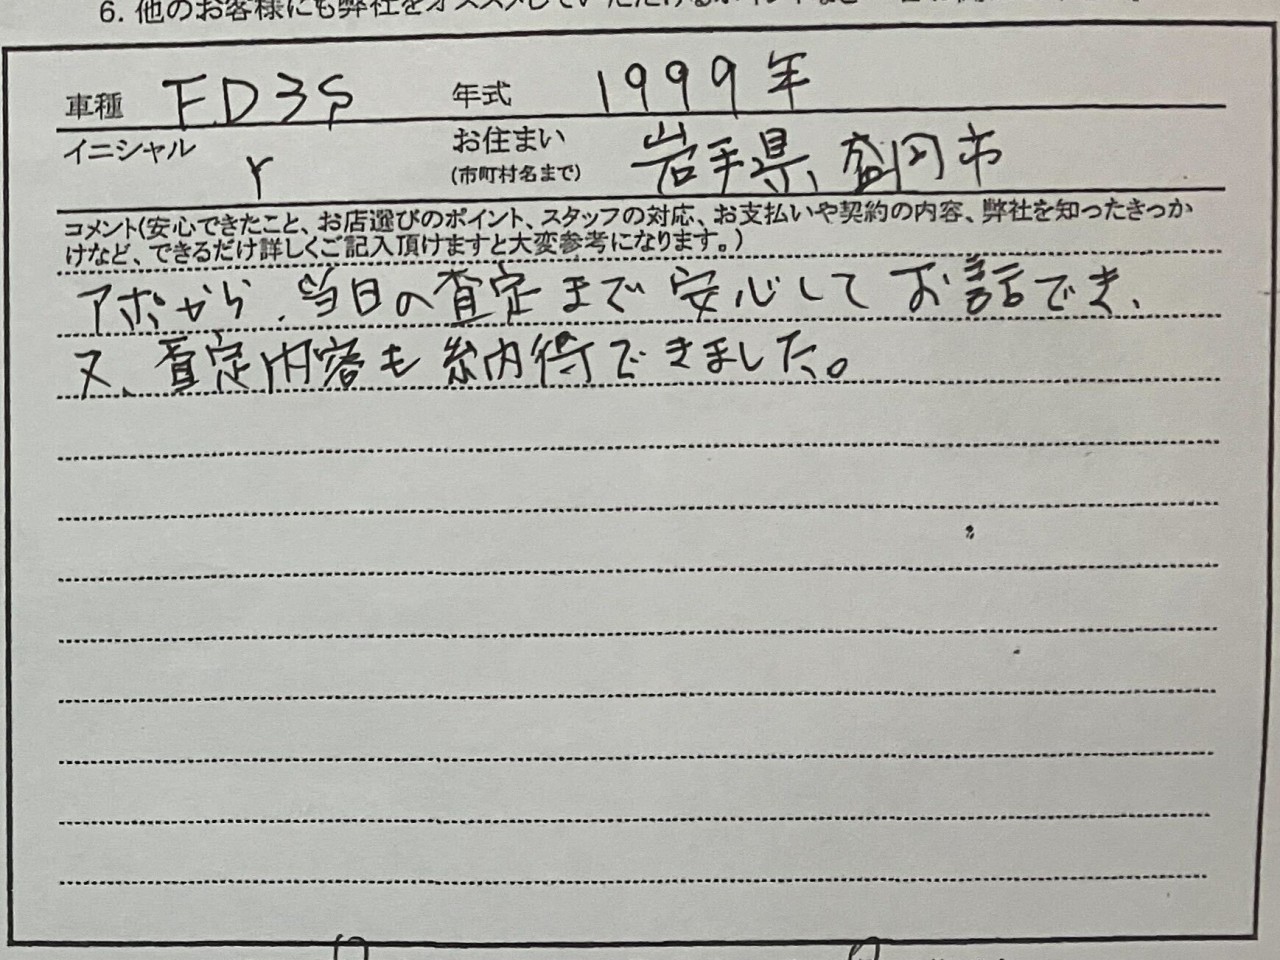 6. 他のお客様にも弊社をオススメしていただけるポイントなど
車種 FD3S 年式 1999年
イニシャル Y お住まい 岩手県、盛岡市
(市町村名まで)
コメント(安心できたこと、お店選びのポイント、スタッフの対応、お支払いや契約の内容、弊社を知ったきっか
けなど、できるだけ詳しくご記入頂けますと大変参考になります。)
アポから、当日の査定まで安心してお話でき、
又、査定内容も納得できました。